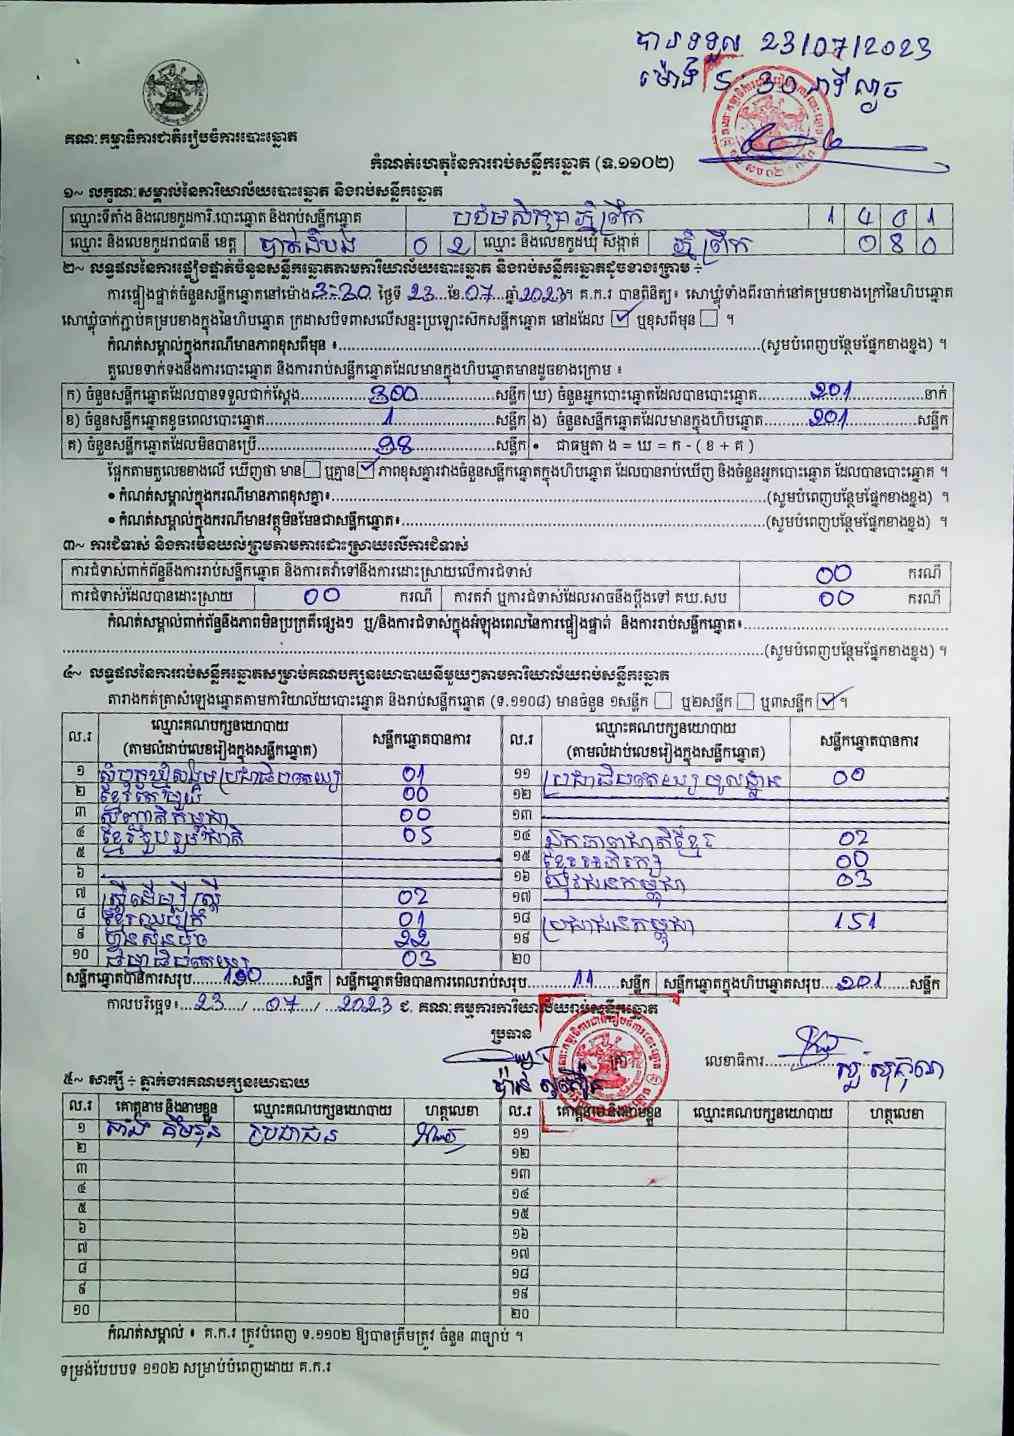 បានទទួល 23/07/2023
ម៉ោង 5:30 នាទី ល្ងាច
គណៈកម្មាធិការជាតិរៀបចំការបោះឆ្នោត
កំណត់ហេតុនៃការរាប់សន្លឹកឆ្នោត (ទ.១១០២)
១~ លក្ខណៈសម្គាល់នៃការិយាល័យបោះឆ្នោត និងរាប់សន្លឹកឆ្នោត
ឈ្មោះទីតាំង និងលេខកូដការិ.បោះឆ្នោត និងរាប់សន្លឹកឆ្នោត បឋមសិក្សា ភ្នំព្រឹក 1 4 0 1
ឈ្មោះ និងលេខកូដរាជធានី ខេត្ត បាត់ដំបង 0 2 ឈ្មោះ និងលេខកូដឃុំ សង្កាត់ ភ្នំព្រឹក 0 8 0
២~ លទ្ធផលនៃការផ្ទៀងផ្ទាត់ចំនួនសន្លឹកឆ្នោតតាមការិយាល័យបោះឆ្នោត និងរាប់សន្លឹកឆ្នោតដូចខាងក្រោម ÷
ការផ្ទៀងផ្ទាត់ចំនួនសន្លឹកឆ្នោតនៅម៉ោង 3-30 ថ្ងៃទី 23 ខែ 07 ឆ្នាំ 2023។ គ.ក.រ បានពិនិត្យ៖ សោឃ្លុំទាំងពីរចាក់នៅគម្របខាងក្រៅនៃហិបឆ្នោត
សោឃ្លុំចាក់ភ្ជាប់គម្របខាងក្នុងនៃហិបឆ្នោត ក្រដាសបិទពាសលើសន្ទះប្រឡោះស៊កសន្លឹកឆ្នោត នៅដដែល ☑ ឬខុសពីមុន ☐ ។
កំណត់សម្គាល់ក្នុងករណីមានភាពខុសពីមុន ៖.....(សូមបំពេញបន្ថែមផ្នែកខាងខ្នង) ។
តួលេខទាក់ទងនឹងការបោះឆ្នោត និងការរាប់សន្លឹកឆ្នោតដែលមានក្នុងហិបឆ្នោតមានដូចខាងក្រោម ៖
ក) ចំនួនសន្លឹកឆ្នោតដែលបានទទួលជាក់ស្តែង 300 សន្លឹក ឃ) ចំនួនអ្នកបោះឆ្នោតដែលបានបោះឆ្នោត 201 នាក់
ខ) ចំនួនសន្លឹកឆ្នោតខូចពេលបោះឆ្នោត 1 សន្លឹក ង) ចំនួនសន្លឹកឆ្នោតដែលមានក្នុងហិបឆ្នោត 201 សន្លឹក
គ) ចំនួនសន្លឹកឆ្នោតដែលមិនបានប្រើ 98 សន្លឹក • ជាធម្មតា ង = ឃ = ក - ( ខ + គ )
ផ្អែកតាមតួលេខខាងលើ ឃើញថា មាន ☐ ឬគ្មាន ☑ ភាពខុសគ្នារវាងចំនួនសន្លឹកឆ្នោតក្នុងហិបឆ្នោត ដែលបានរាប់ឃើញ និងចំនួនអ្នកបោះឆ្នោត ដែលបានបោះឆ្នោត ។
• កំណត់សម្គាល់ក្នុងករណីមានភាពខុសគ្នា៖.....(សូមបំពេញបន្ថែមផ្នែកខាងខ្នង) ។
• កំណត់សម្គាល់ក្នុងករណីមានវត្ថុមិនមែនជាសន្លឹកឆ្នោត៖.....(សូមបំពេញបន្ថែមផ្នែកខាងខ្នង) ។
៣~ ការជំទាស់ និងការមិនយល់ព្រមតាមការដោះស្រាយលើការជំទាស់
ការជំទាស់ពាក់ព័ន្ធនឹងការរាប់សន្លឹកឆ្នោត និងការតវ៉ាទៅនឹងការដោះស្រាយលើការជំទាស់ 00 ករណី
ការជំទាស់ដែលបានដោះស្រាយ 00 ករណី ការតវ៉ា ឬការជំទាស់ដែលអាចនឹងប្តឹងទៅ គឃ.សប 00 ករណី
កំណត់សម្គាល់ពាក់ព័ន្ធនឹងភាពមិនប្រក្រតីផ្សេងៗ ឬ/និងការជំទាស់ក្នុងអំឡុងពេលនៃការផ្ទៀងផ្ទាត់ និងការរាប់សន្លឹកឆ្នោត៖.....
.....(សូមបំពេញបន្ថែមផ្នែកខាងខ្នង) ។
៤~ លទ្ធផលនៃការរាប់សន្លឹកឆ្នោតសម្រាប់គណបក្សនយោបាយនីមួយៗតាមការិយាល័យរាប់សន្លឹកឆ្នោត
តារាងកត់ត្រាសំឡេងឆ្នោតតាមការិយាល័យបោះឆ្នោត និងរាប់សន្លឹកឆ្នោត (ទ.១១០៨) មានចំនួន ១សន្លឹក ☐ ឬ២សន្លឹក ☐ ឬ៣សន្លឹក ☑ ។
ល.រ ឈ្មោះគណបក្សនយោបាយ (តាមលំដាប់លេខរៀងក្នុងសន្លឹកឆ្នោត) សន្លឹកឆ្នោតបានការ ល.រ ឈ្មោះគណបក្សនយោបាយ (តាមលំដាប់លេខរៀងក្នុងសន្លឹកឆ្នោត) សន្លឹកឆ្នោតបានការ
១ សំបុកឃ្មុំសង្គមប្រជាធិបតេយ្យ 01 ១១ ប្រជាធិបតេយ្យមូលដ្ឋាន 00
២ ខ្មែរតែមួយ 00 ១២
៣ សញ្ជាតិកម្ពុជា 00 ១៣
៤ ខ្មែររួបរួមជាតិ 05 ១៤ ឯកភាពជាតិខ្មែរ 02
៥ ១៥ ខ្មែរអភិរក្ស 00
៦ ១៦ យុវជនកម្ពុជា 03
៧ ស្រ្តីដើម្បីស្រ្តី 02 ១៧
៨ ខ្មែរឈប់ក្រ 01 ១៨ ប្រជាជនកម្ពុជា 151
៩ ហ្វ៊ុនស៊ិនប៉ិច 22 ១៩
១០ ធម្មាធិបតេយ្យ 03 ២០
សន្លឹកឆ្នោតបានការសរុប 190 សន្លឹក សន្លឹកឆ្នោតមិនបានការពេលរាប់សរុប 11 សន្លឹក សន្លឹកឆ្នោតក្នុងហិបឆ្នោតសរុប 201 សន្លឹក
កាលបរិច្ឆេទ៖ 23 / 07 / 2023 ជ. គណៈកម្មការការិយាល័យរាប់សន្លឹកឆ្នោត
ប្រធាន
លេខាធិការ
៥~ សាក្សី ÷ ភ្នាក់ងារគណបក្សនយោបាយ
ល.រ គោត្តនាម និងនាមខ្លួន ឈ្មោះគណបក្សនយោបាយ ហត្ថលេខា ល.រ គោត្តនាម និងនាមខ្លួន ឈ្មោះគណបក្សនយោបាយ ហត្ថលេខា
១ ប្រជាជន ១១
២ ១២
៣ ១៣
៤ ១៤
៥ ១៥
៦ ១៦
៧ ១៧
៨ ១៨
៩ ១៩
១០ ២០
កំណត់សម្គាល់ ៖ គ.ក.រ ត្រូវបំពេញ ទ.១១០២ ឱ្យបានត្រឹមត្រូវ ចំនួន ៣ច្បាប់ ។
ទម្រង់បែបបទ ១១០២ សម្រាប់បំពេញដោយ គ.ក.រ